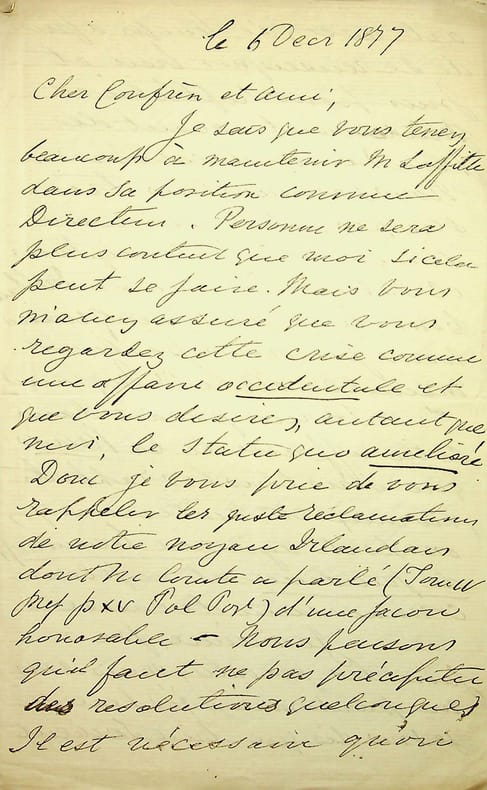 le 6 Decr 1877
Cher Confrèr et ami,
Je sais que vous tenez
beaucoup à maintenir M Laffitte
dans sa position comme
Directeur. Personne ne sera
plus content que moi si cela
peut se faire. Mais vous
m'avez assuré que vous
regardez cette crise comme
une affaire occidentale et
que vous desirez, autant que
moi, le statu quo amelioré
Donc je vous prie de vous
rappeler les juste reclamations
de notre noyau Irlandais
dont M Comte a parlé (Tom IV
Pref p XV Pol Pos) d'une façon
honorable - Nous pensons
qu'il faut ne pas précipiter
des resolutions quelconques
Il est nécessaire qu'on